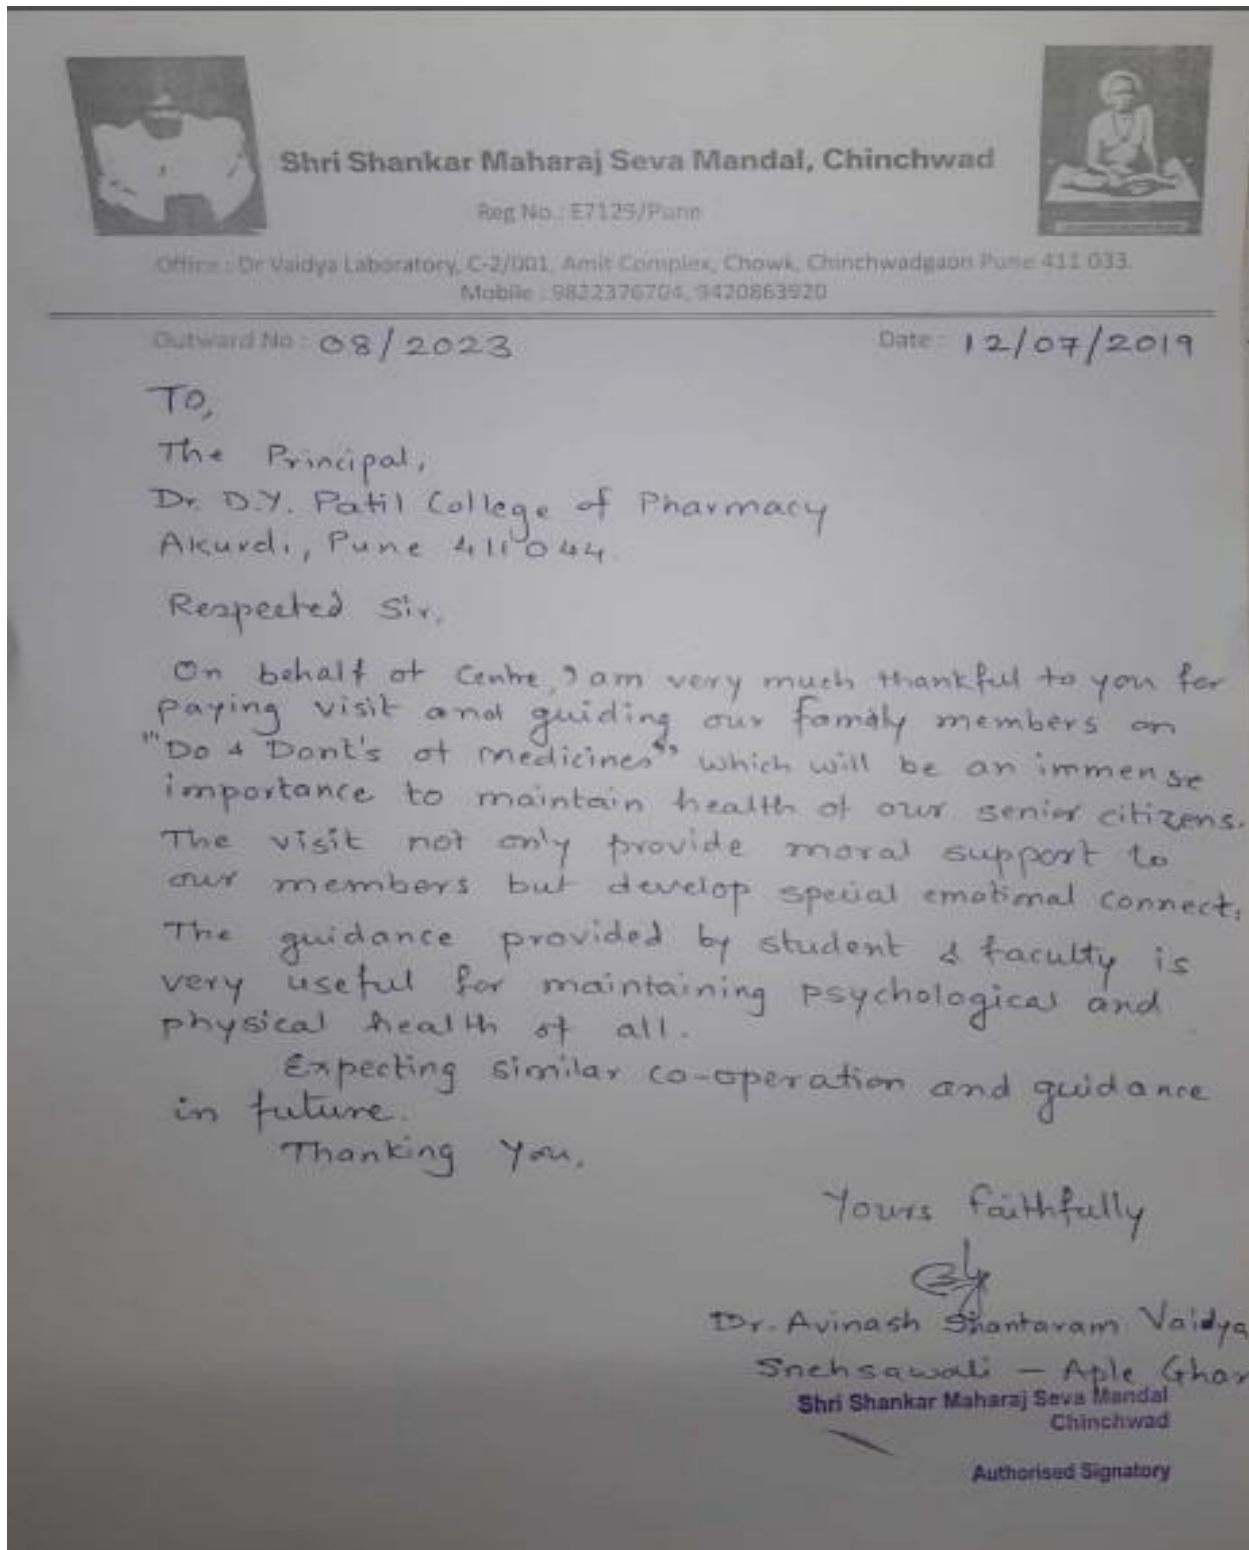 Shri Shankar Maharaj Seva Mandal, Chinchwad
Reg No.: E7129/Pune
Office : Dr Vaidya Laboratory, C-2/001, Amit Complex, Chowk, Chinchwadgaon Pune 411 033.
Mobile : 9822376704, 9420863920
Outward No : 08/2023 Date : 12/07/2019
To,
The Principal,
Dr. D.Y. Patil College of Pharmacy
Akurdi, Pune 411044.
Respected Sir,
On behalf of Centre, I am very much thankful to you for
paying visit and guiding our family members on
"Do & Dont's of medicines" which will be an immense
importance to maintain health of our senior citizens.
The visit not only provide moral support to
our members but develop special emotional connect.
The guidance provided by student & faculty is
very useful for maintaining psychological and
physical health of all.
Expecting similar co-operation and guidance
in future.
Thanking You,
Yours faithfully
Dr. Avinash Shantaram Vaidya
Snehsawali - Aple Ghar
Shri Shankar Maharaj Seva Mandal
Chinchwad
Authorised Signatory